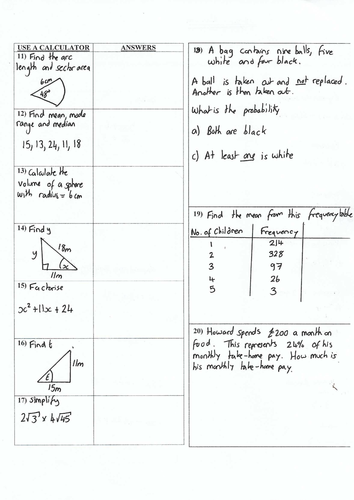 USE A CALCULATOR
ANSWERS
11) Find the arc
length and sector area
6cm
48°
12) Find mean, mode
range and median
15, 13, 24, 11, 18
13) Calculate the
volume of a sphere
with radius = 6cm
14) Find y
18m
y
x
11m
15) Factorise
x² + 11x + 24
16) Find t
11m
t
15m
17) Simplify
2√3 × 4√45
18) A bag contains nine balls, five
white and four black.
A ball is taken out and not replaced.
Another is then taken out.
What is the probability
a) Both are black
c) At least one is white
19) Find the mean from this frequency table
No. of Children Frequency
1 214
2 328
3 97
4 26
5 3
20) Howard spends £200 a month on
food. This represents 24% of his
monthly take-home pay. How much is
his monthly take-home pay.